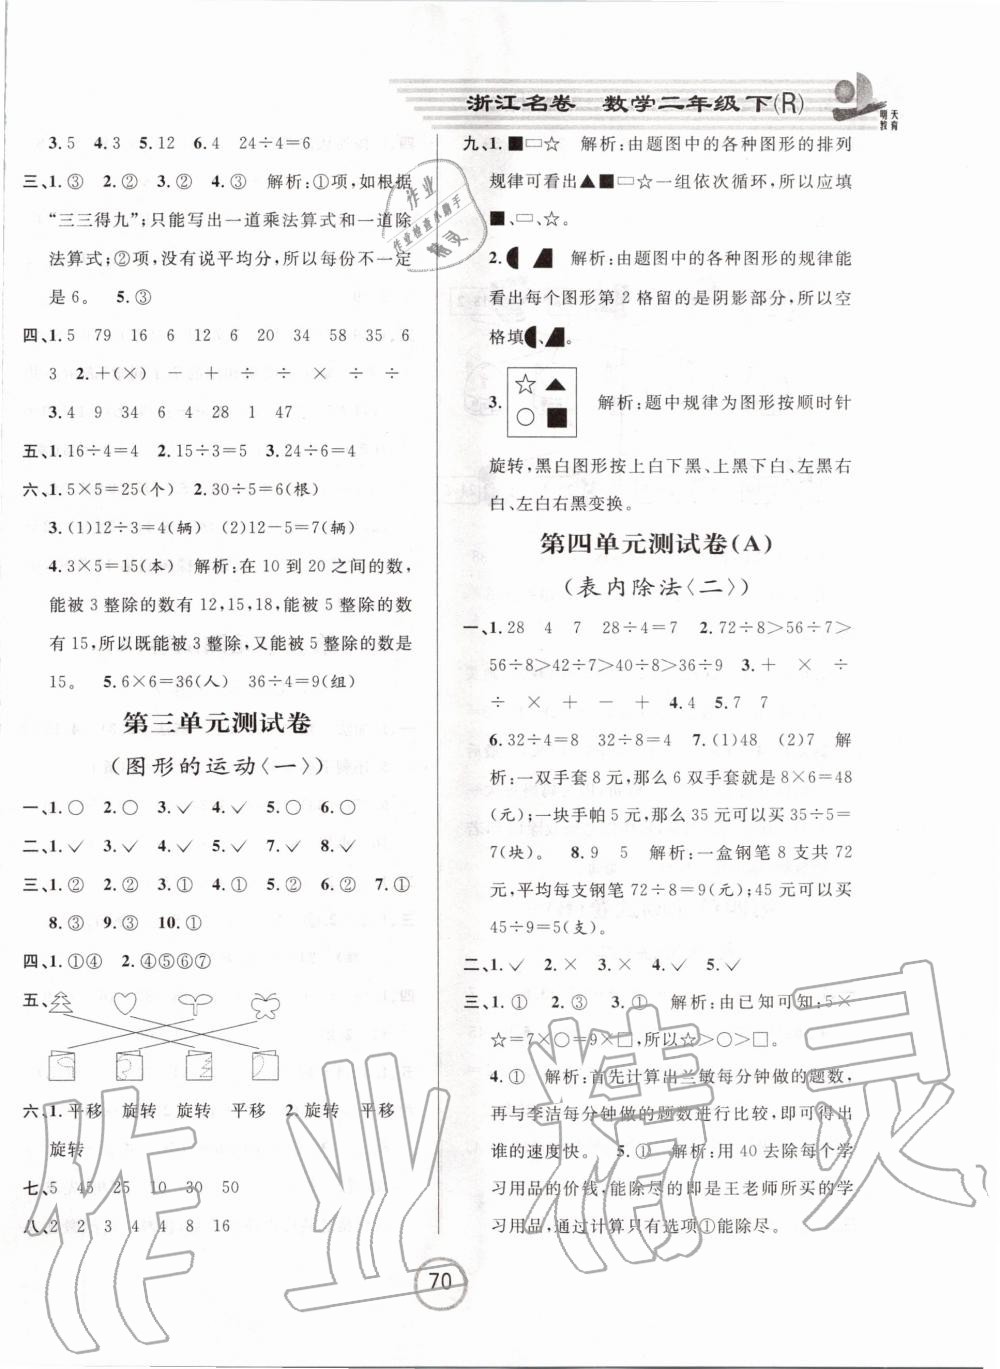 浙江名卷　数学二年级下(R)
明天教育
3.5　4.3　5.12　6.4　24÷4=6
三、1.③　2.②　3.②　4.③　解析:①项,如根据
“三三得九”;只能写出一道乘法算式和一道除
法算式;②项,没有说平均分,所以每份不一定
是6。　5.③
四、1.5　79　16　6　12　6　20　34　58　35　6
3　2.+(×)　－　+　÷　÷　×　÷　÷
3.4　9　34　6　4　28　1　47
五、1.16÷4=4　2.15÷3=5　3.24÷6=4
六、1.5×5=25(个)　2.30÷5=6(根)
3.(1)12÷3=4(辆)　(2)12－5=7(辆)
4.3×5=15(本)　解析:在10到20之间的数,
能被3整除的数有12,15,18,能被5整除的数
有15,所以既能被3整除,又能被5整除的数是
15。　5.6×6=36(人)　36÷4=9(组)
第三单元测试卷
(图形的运动〈一〉)
一、1.○　2.○　3.✓　4.✓　5.○　6.○
二、1.✓　2.✓　3.✓　4.✓　5.✓　7.✓　8.✓
三、1.②　2.②　3.①　4.①　5.②　6.②　7.①
8.③　9.③　10.①
四、1.①④　2.④⑤⑥⑦
五、
六、1.平移　旋转　旋转　平移　2.旋转　平移
旋转
七、5　45　25　10　30　50
八、2　2　3　4　4　8　16
九、1.■▭☆　解析:由题图中的各种图形的排列
规律可看出▲■▭☆一组依次循环,所以应填
■、▭、☆。
2.　解析:由题图中的各种图形的规律能
看出每个图形第2格留的是阴影部分,所以空
格填、。
3.☆▲○■　解析:题中规律为图形按顺时针
旋转,黑白图形按上白下黑、上黑下白、左黑右
白、左白右黑变换。
第四单元测试卷(A)
(表内除法〈二〉)
一、1.28　4　7　28÷4=7　2.72÷8>56÷7>
56÷8>42÷7>40÷8>36÷9　3.+　×　÷
÷　÷　×　+　－　+　4.4　5.7　7
6.32÷4=8　32÷8=4　7.(1)48　(2)7　解
析:一双手套8元,那么6双手套就是8×6=48
(元);一块手帕5元,那么35元可以买35÷5=
7(块)。　8.9　5　解析:一盒钢笔8支共72
元,平均每支钢笔72÷8=9(元);45元可以买
45÷9=5(支)。
二、1.✓　2.×　3.×　4.✓　5.✓
三、1.①　2.③　3.①　解析:由已知可知:5×
☆=7×○=9×□,所以☆>○>□。
4.①　解析:首先计算出兰敏每分钟做的题数,
再与李洁每分钟做的题数进行比较,即可得出
谁的速度快。　5.①　解析:用40去除每个学
习用品的价钱,能除尽的即是王老师所买的学
习用品,通过计算只有选项①能除尽。
70
作业
作业检查小助手
精灵
作业精灵